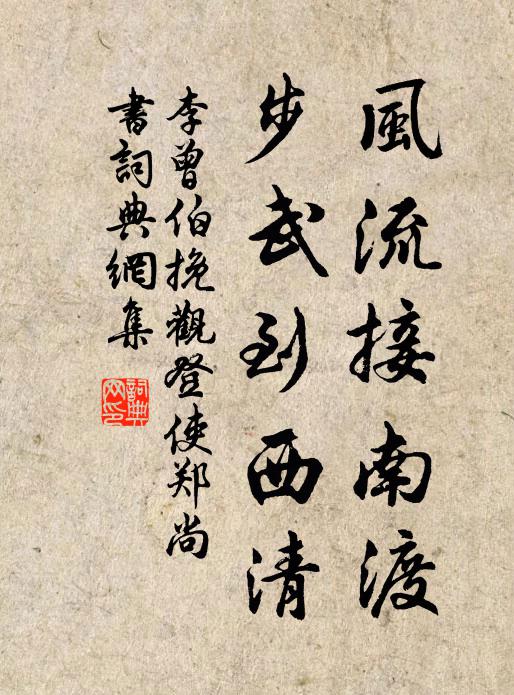 風流接南渡
步武到西清
李曾伯挽觀登使郑尚
書詞典網集
詞典網印